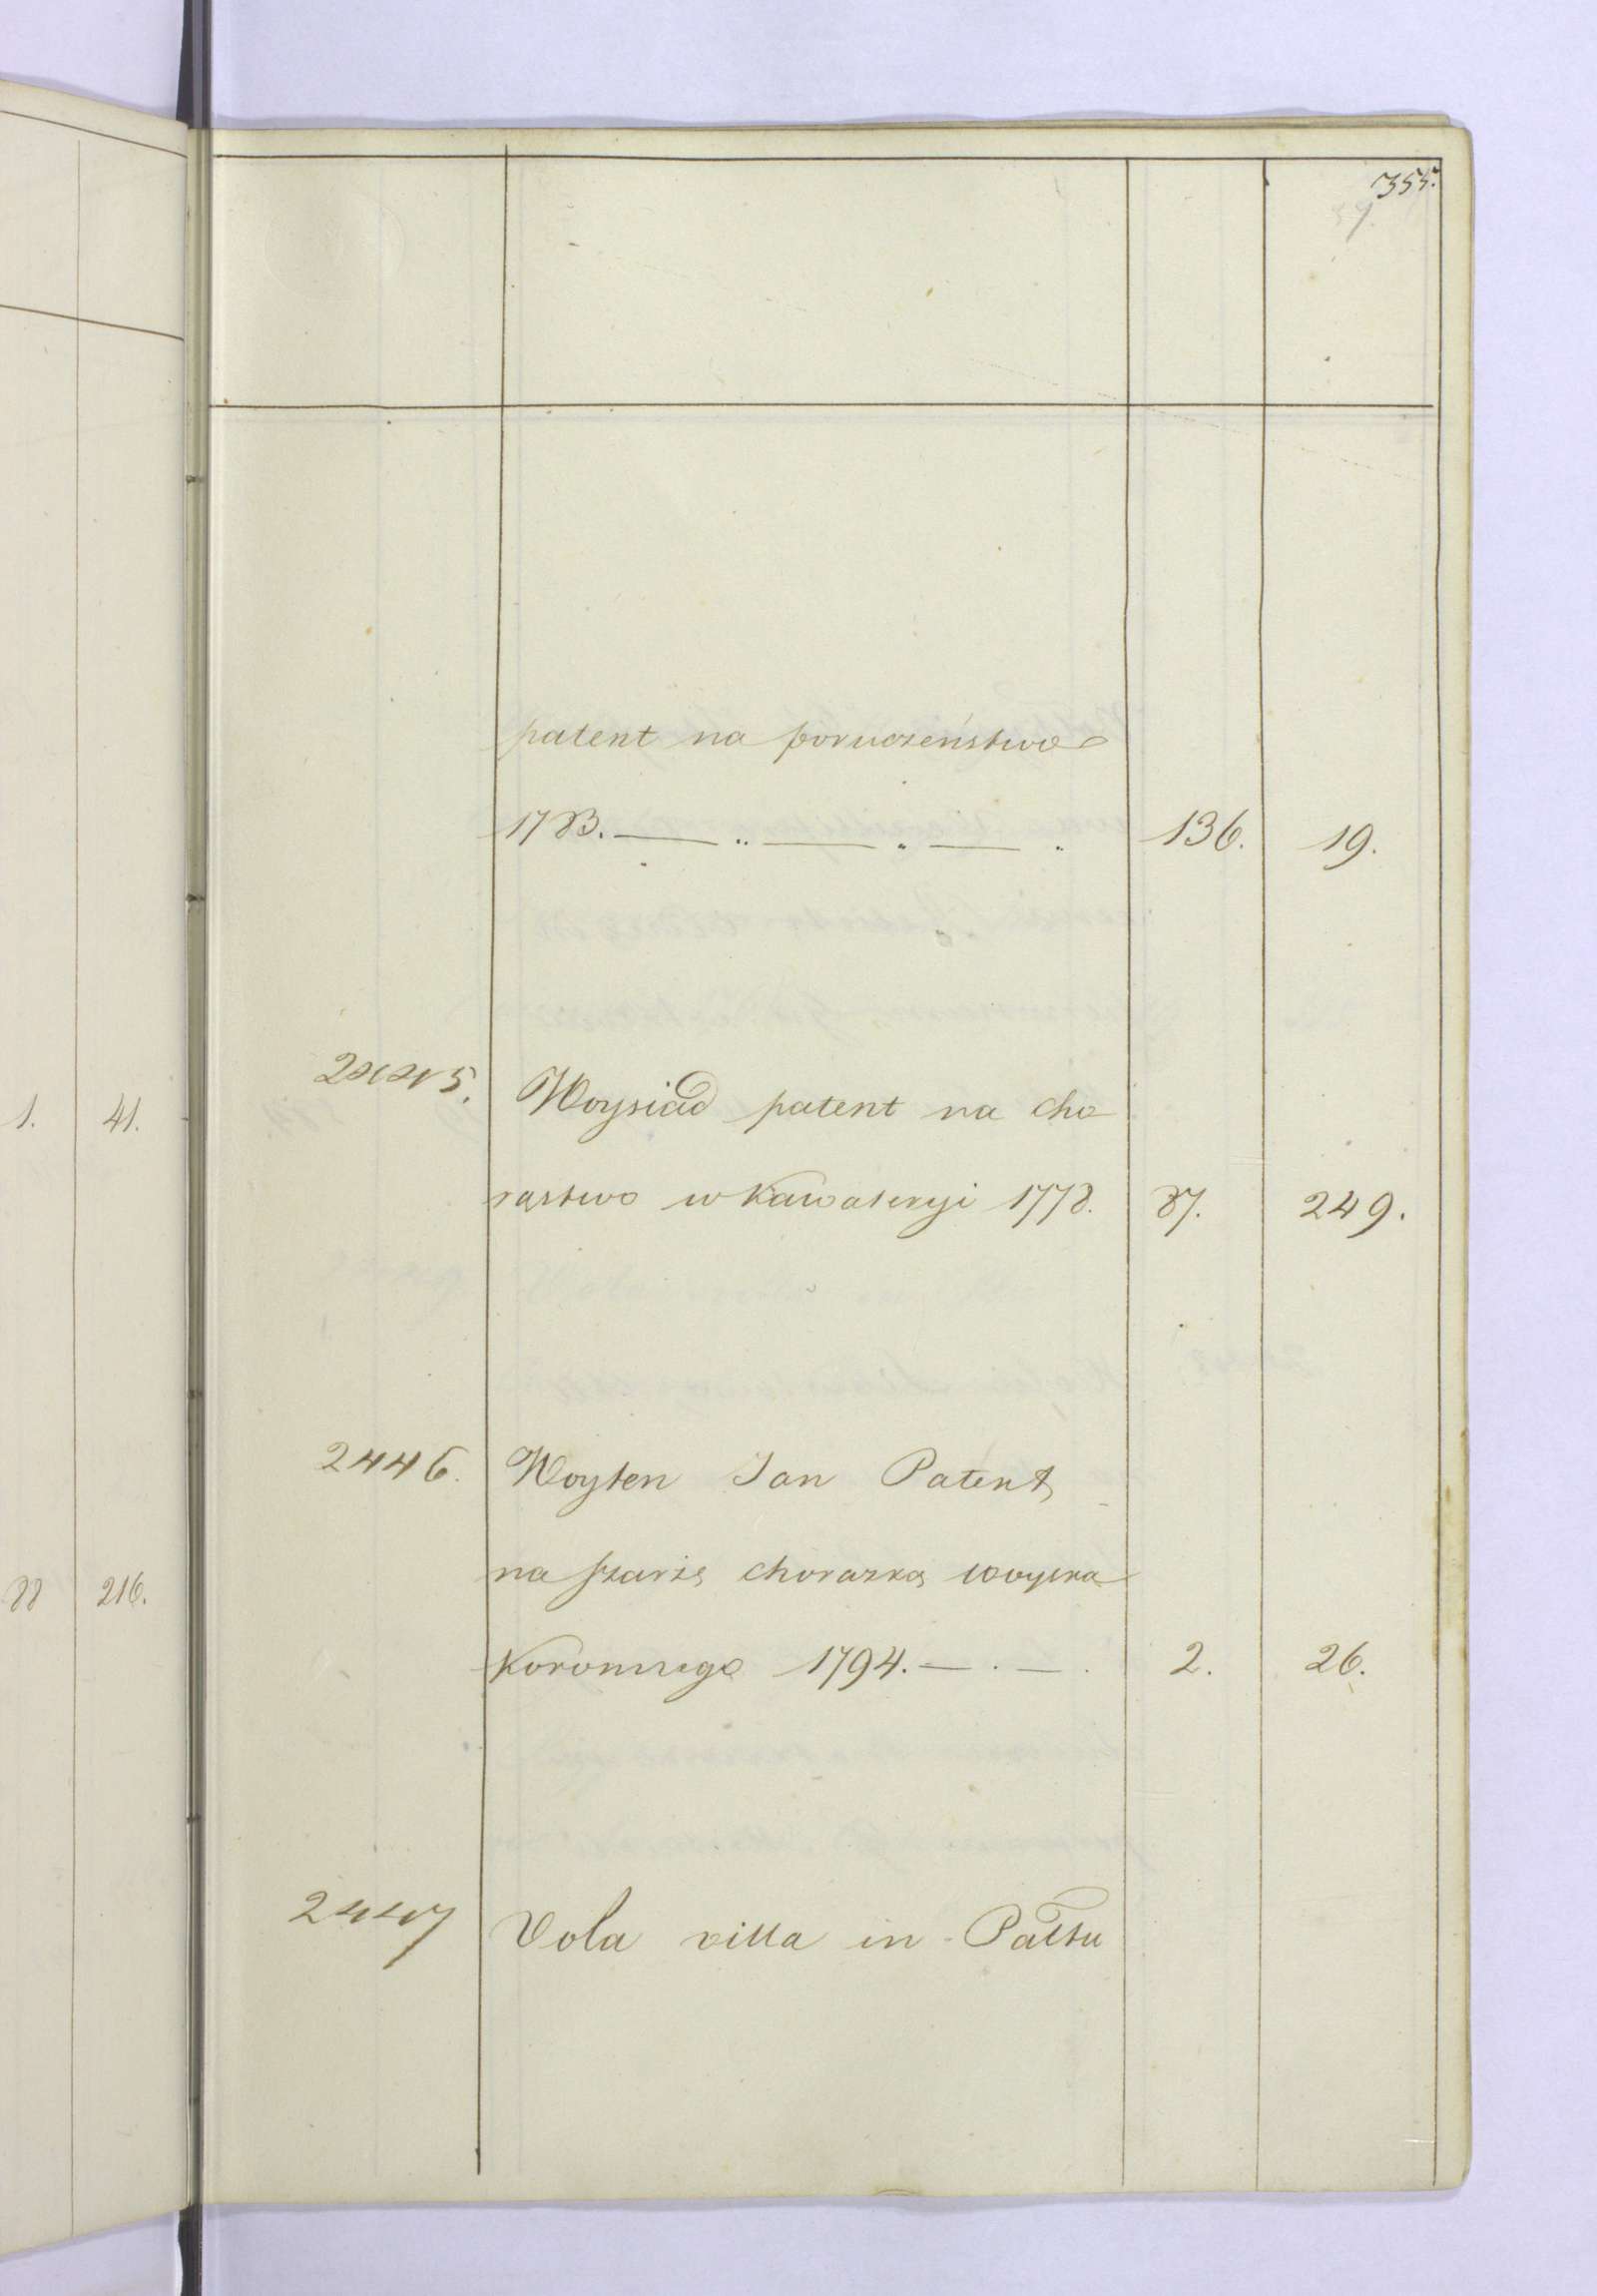 355.
patent na poruczeństwo
1783. — „ — „ — „ 136. 19.
2445. Woysiad patent na cho
rąstwo w Kawaleryi 1778. 87. 249.
2446. Woyten Jan Patent
na szarżę chorązką woyska
Koronnego 1794. — . — . 2. 26.
2447 Vola villa in Pałtu
1. 41.
88 216.